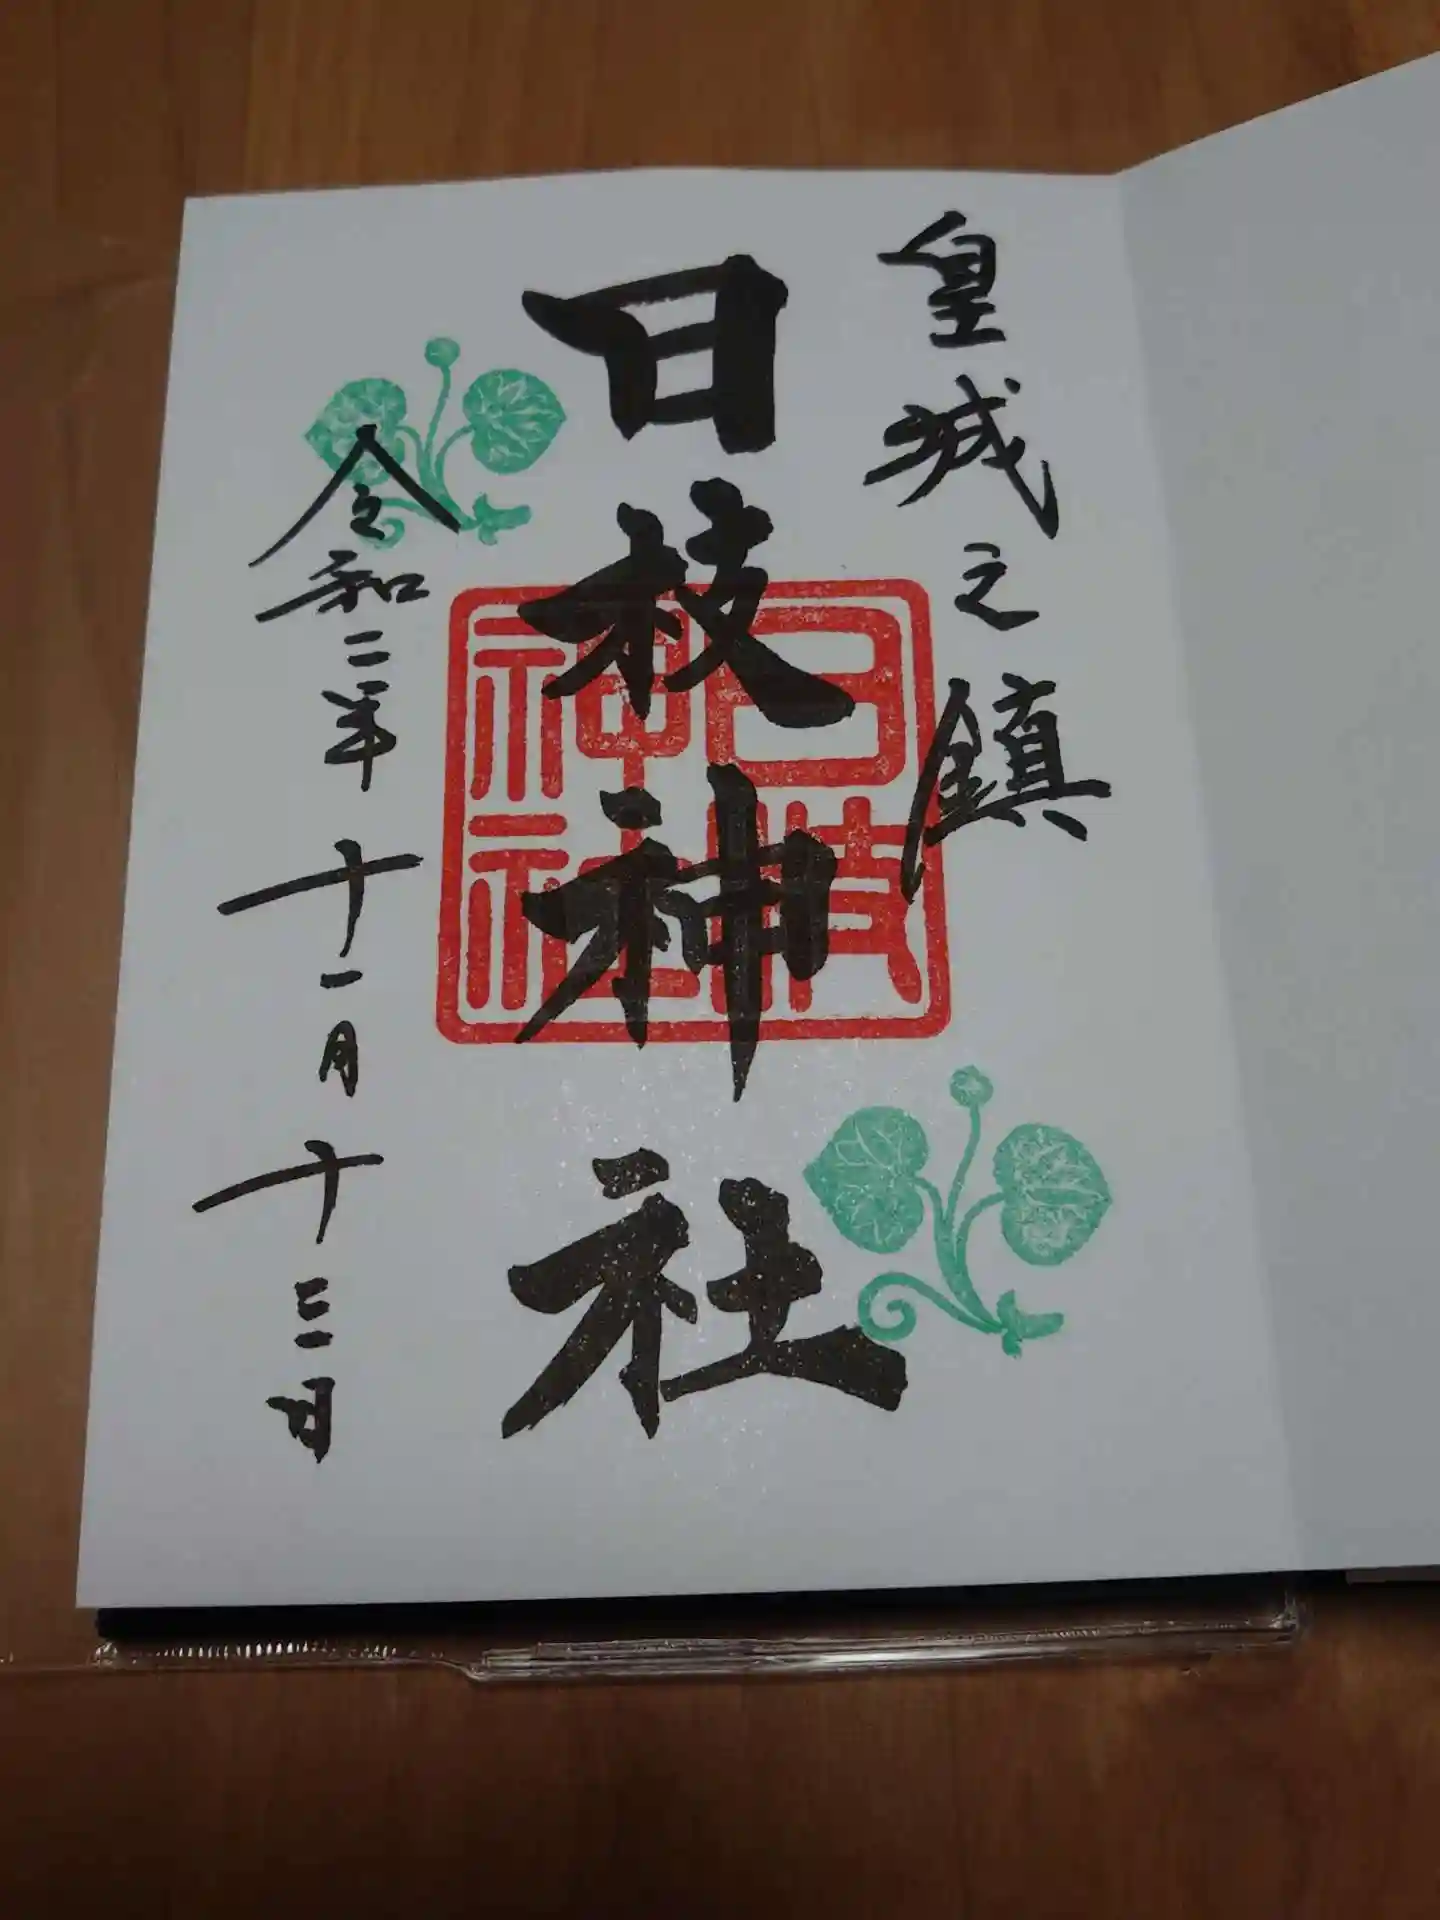 皇城之鎮
日枝神社
日枝
神社
令和二年十一月十三日